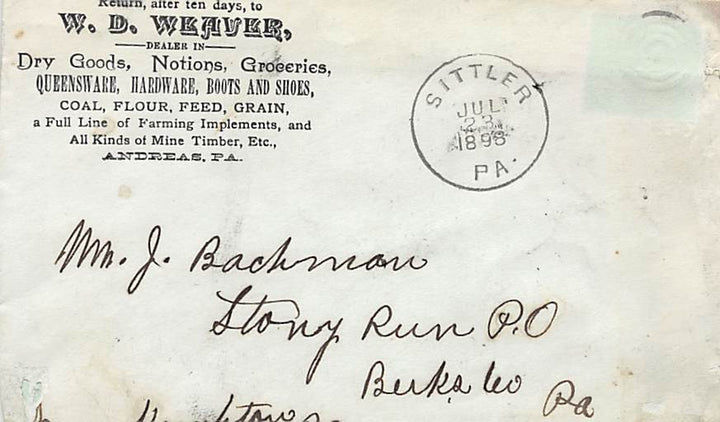 Return, after ten days, to
W. D. WEAVER,
DEALER IN
Dry Goods, Notions, Groceries,
QUEENSWARE, HARDWARE, BOOTS AND SHOES,
COAL, FLOUR, FEED, GRAIN,
a Full Line of Farming Implements, and
All Kinds of Mine Timber, Etc.,
ANDREAS, PA.
SITTLER
JUL
23
1898
PA.
Wm. J. Bachman
Stony Run P.O
Berks Co Pa